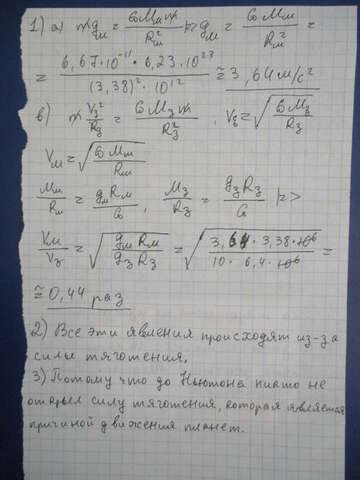 1) а) m g_м = G M_м m / R_м² |=> g_м = G M_м / R_м² =
= 6,67·10⁻¹¹ · 6,23·10²³ / (3,38)² · 10¹² ≅ 3,64 м/с²
в) m V_з² / R_з = G M_з m / R_з² , V_з = √(G M_з / R_з)
V_м = √(G M_м / R_м)
M_м / R_м = g_м R_м / G , M_з / R_з = g_з R_з / G |=>
V_м / V_з = √(g_м R_м / g_з R_з) = √(3,64 · 3,38 · 10⁶ / 10 · 6,4 · 10⁶) =
≅ 0,44 раз
2) Все эти явления происходят из-за
силы тяготения.
3) Потому что до Ньютона никто не
открыл силу тяготения, которая является
причиной движения планет.